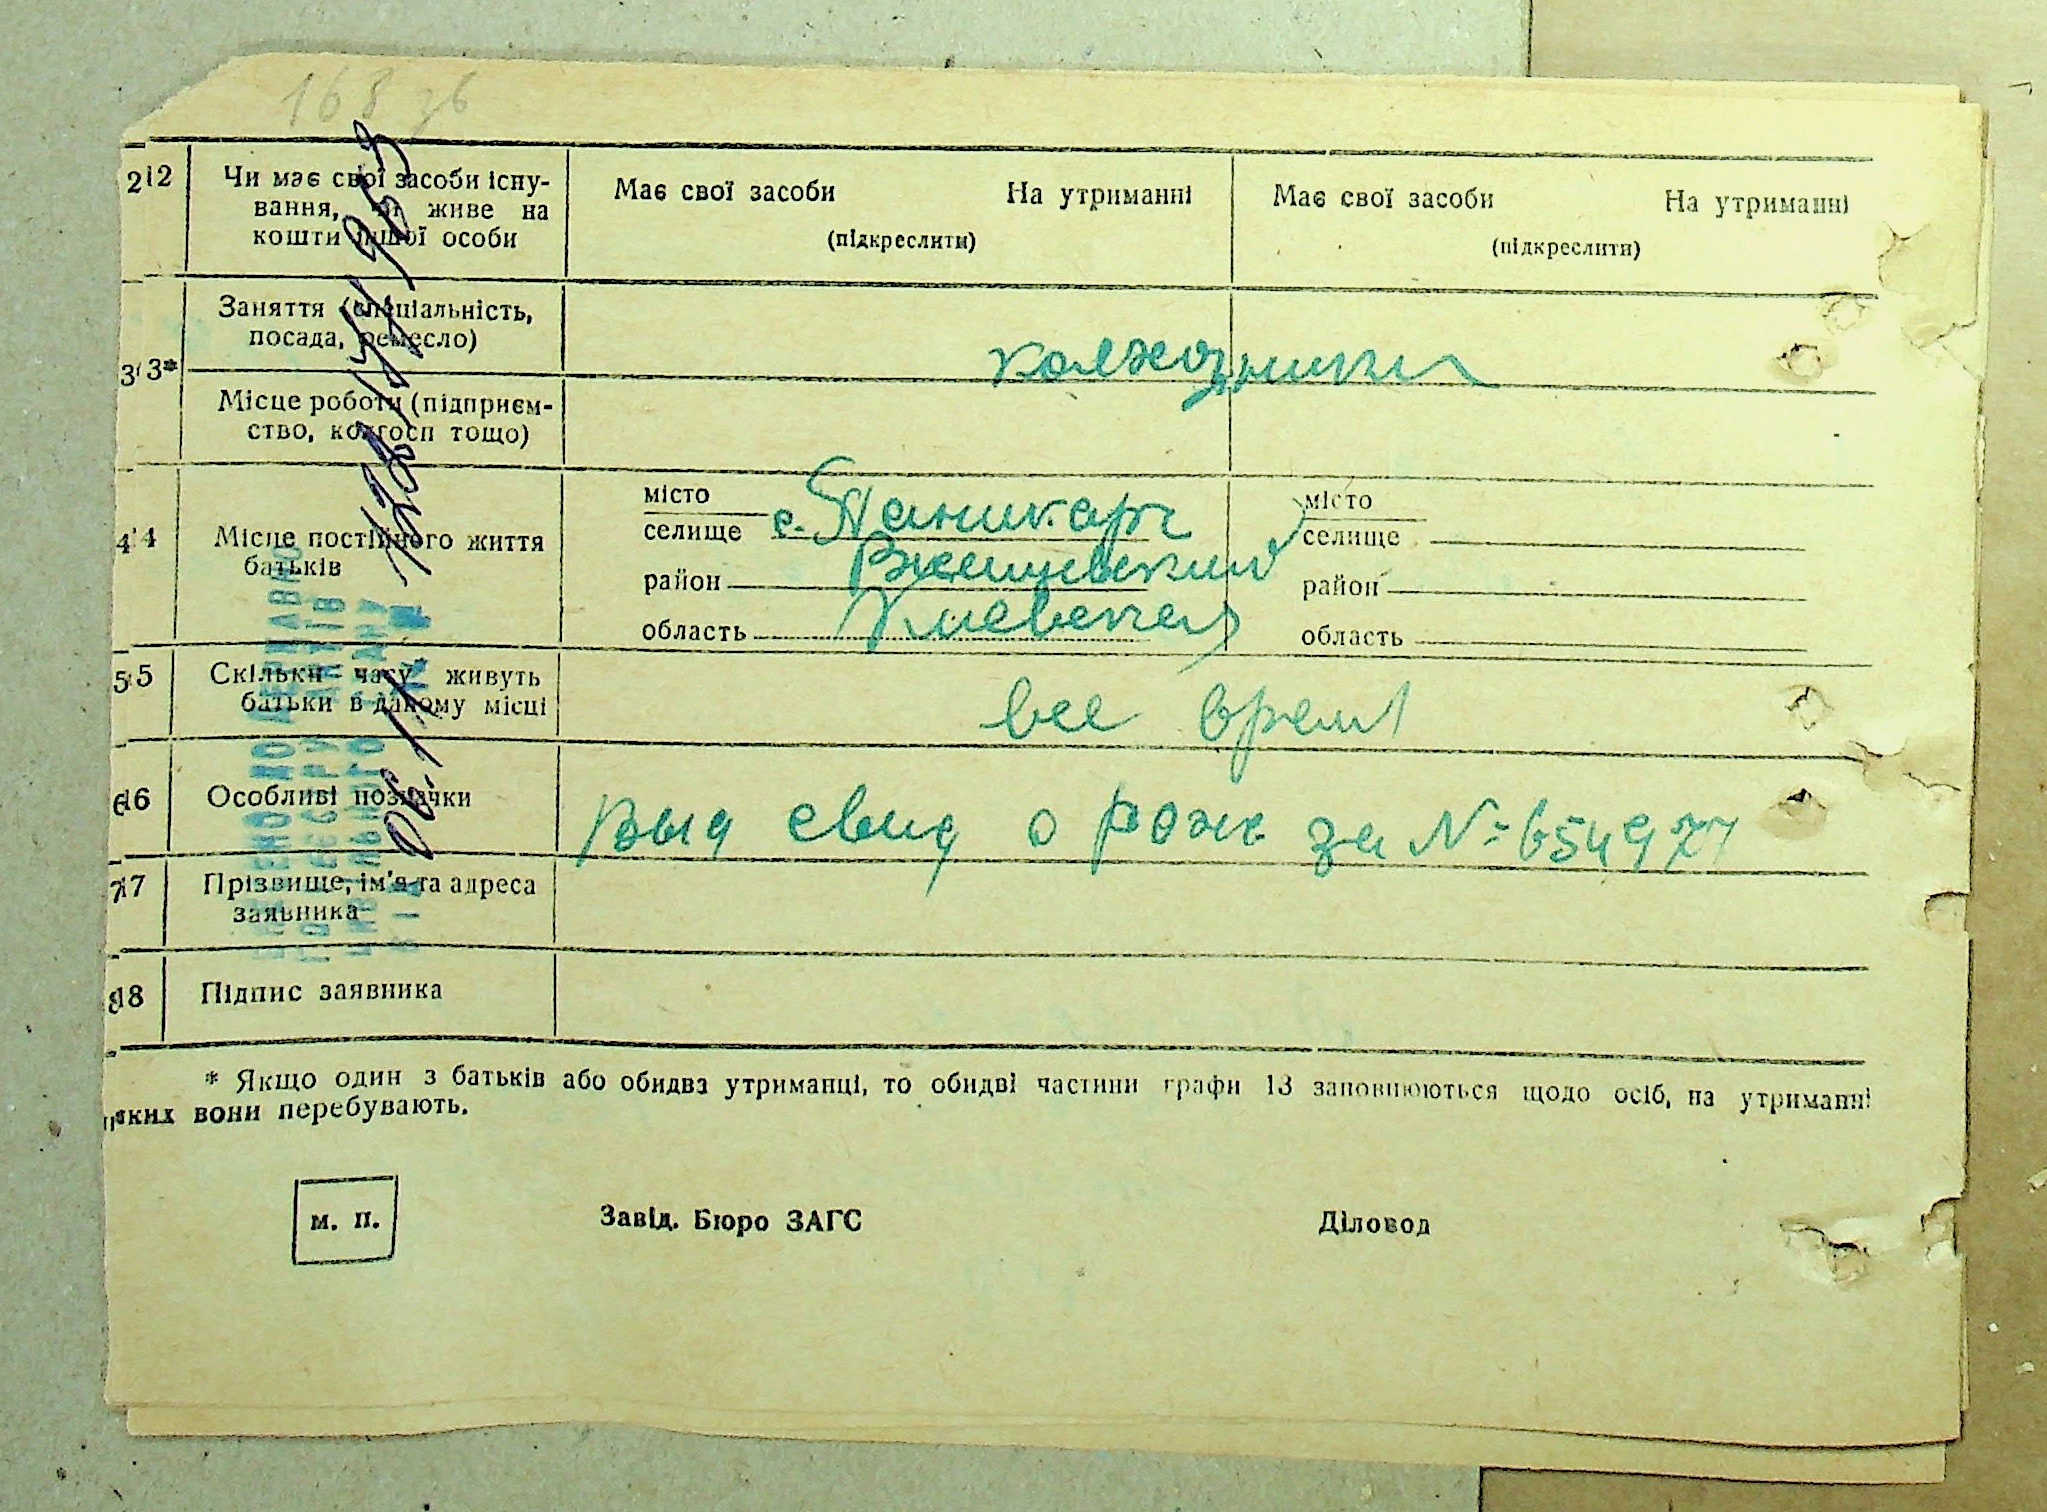 168 зв
12 Чи має свої засоби існу-
вання, чи живе на
кошти іншої особи
Має свої засоби На утриманні
(підкреслити)
Має свої засоби На утриманні
(підкреслити)
13* Заняття (спеціальність,
посада, ремесло)
колхозники
Місце роботи (підприєм-
ство, колгосп тощо)
14 Місце постійного життя
батьків
місто
селище с. Паникарг
район
область Киевская
місто
селище
район
область
15 Скільки часу живуть
батьки в даному місці
все время
16 Особливі позначки
Выд свид о рож за №
17 Прізвище, ім'я та адреса
заявника
18 Підпис заявника
* Якщо один з батьків або обидва утриманці, то обидві частини графи 13 заповнюються щодо осіб, на утриманні
яких вони перебувають.
м. п.
Завід. Бюро ЗАГС
Діловод